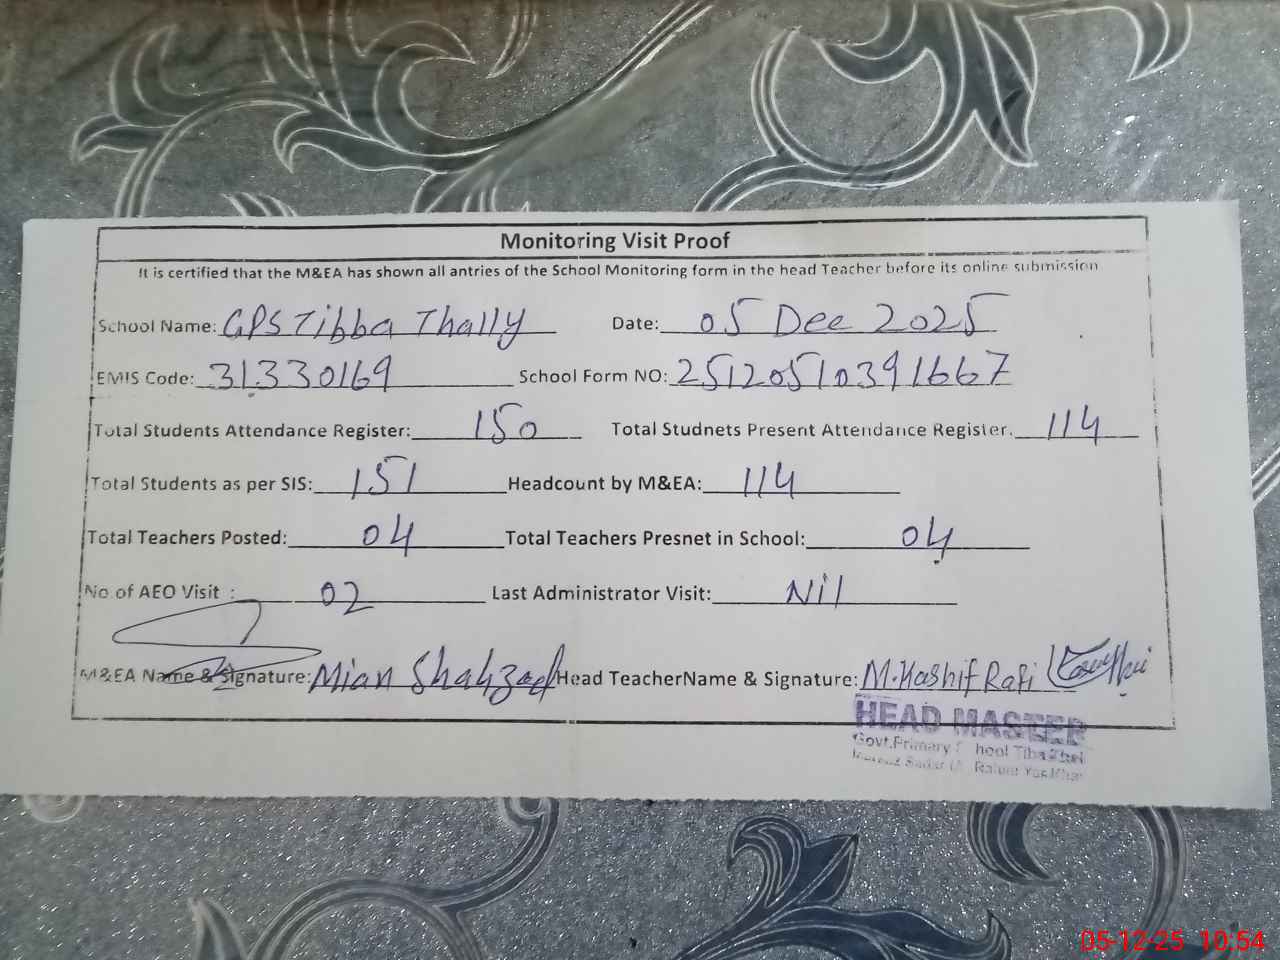 Monitoring Visit Proof
It is certified that the M&EA has shown all antries of the School Monitoring form in the head Teacher before its online submission
School Name: GPS Tibba Thally Date: 05 Dec 2025
EMIS Code: 31330169 School Form NO: 25120510391667
Total Students Attendance Register: 150 Total Studnets Present Attendance Register. 114
Total Students as per SIS: 151 Headcount by M&EA: 114
Total Teachers Posted: 04 Total Teachers Presnet in School: 04
No of AEO Visit : 02 Last Administrator Visit: Nil
M&EA Name & Signature: Mian Shahzad Head TeacherName & Signature: M.Kashif Rafi
HEAD MASTER
Govt.Primary
05-12-25 10:54